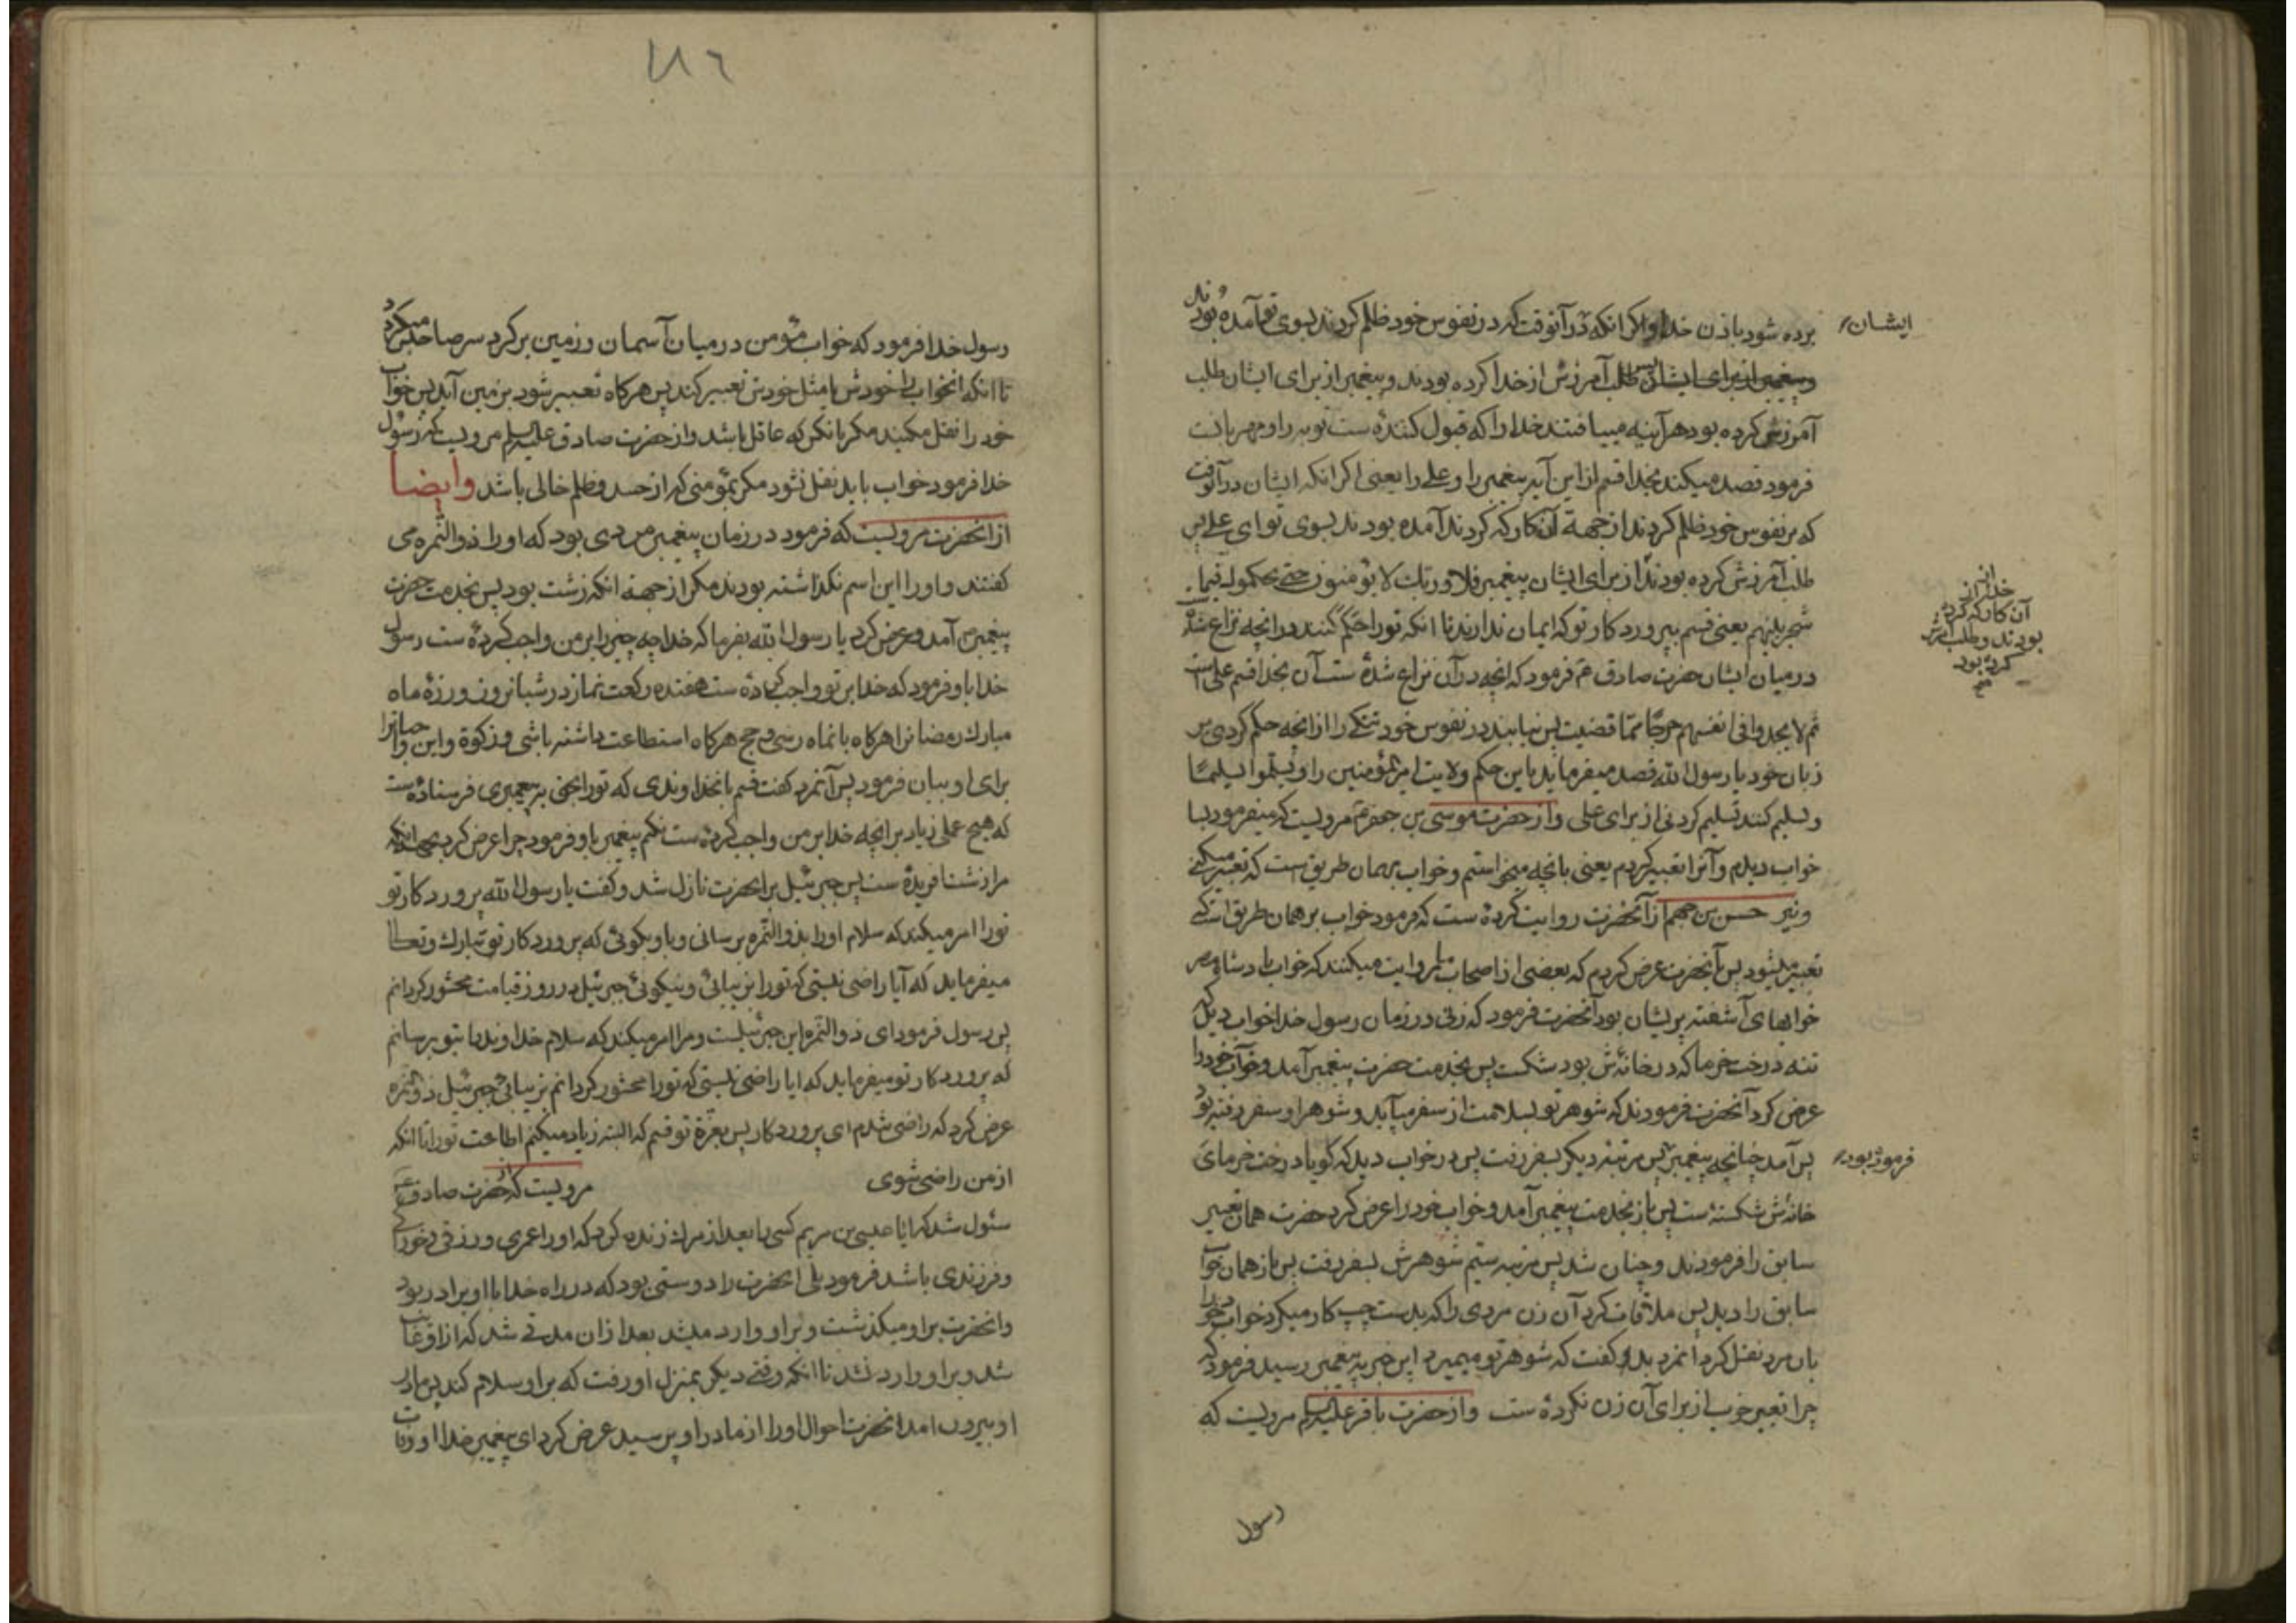 برده شود باذن خدا و اکر انکه در آنوقت که در نفوس خود ظلم کردند بسوی تو آمده بودند
ایشان
و پیغمبر از برای ایشان پس طلب آمرزش از خدا کرده بودند و پیغمبر از برای ایشان طلب
آمرزش کرده بود هر آینه مییافتند خدا را که قبول کننده ست توبه را و مهربانت
فرمود قصد میکند بخدا قسم از این آیه پیغمبر را و علی را یعنی اکر انکه ایشان در آنوقت
که بر نفوس خود ظلم کردند از جهة آن کار که کردند آمده بودند بسوی تو ای علی پس
طلب آمرزش کرده بودند از برای ایشان پیغمبر فلا و ربک لا یؤمنون حتی یحکموک فیما
خدا از
آن کار که کرده
بودند و طلب آمرزش
کرده بود
شجر بینهم یعنی قسم بپروردکار تو که ایمان ندارند تا انکه تو را حکم کنند در انچه نزاع شد
در میان ایشان حضرت صادق ع فرمود که انچه در آن نزاع شده ست آن بخدا قسم علی است
ثم لا یجدوا فی انفسهم حرجا مما قضیت پس نیابند در نفوس خود تنکی را از انچه حکم کردی بر
زبان خود یا رسول الله قصد میفرماید باین حکم ولایت امیرالمؤمنین را و یسلموا تسلیما
و تسلیم کنند تسلیم کردنی از برای علی و از حضرت موسی بن جعفر ع مرویست که میفرمود بسا
خواب دیدم و آنرا تعبیر کردم یعنی بانچه میخواستم و خواب بر همان طریق است که تعبیر میکنی
و نیز حسن بن جهم از آنحضرت روایت کرده ست که فرمود خواب بر همان طریق است که
تعبیر میشود پس بآنحضرت عرض کردم که بعضی از اصحاب ما روایت میکنند که خواب پادشاه مصر
خوابهای آشفته پریشان بود آنحضرت فرمود که زنی در زمان رسول خدا خواب دید که
تنه درخت خرما که در خانه‌ش بود شکست پس بخدمت حضرت پیغمبر آمد و خواب خود را
عرض کرد آنحضرت فرمودند که شوهر تو بسلامت از سفر میآید و شوهر او سفر رفته بود
پس آمد چنانچه پیغمبر پس مرتبه دیکر بسفر رفت پس در خواب دید که کویا درخت خرمای
فرموده بود
خانه‌ش شکسته ست پس باز بخدمت پیغمبر آمد و خواب خود را عرض کرد حضرت همان تعبیر
سابق را فرمودند و چنان شد پس مرتبه سیم شوهرش بسفر رفت پس باز همان خواب
سابق را دید پس ملاقات کرد آن زن مردی را که بدست چپ کار میکرد خواب خود را
بان مرد نقل کرد انمرد باو کفت که شوهر تو میمیرد این خبر به پیغمبر رسید فرمود که
چرا تعبیر خوب از برای آن زن نکرده ست و از حضرت باقر علیه السلام مرویست که
رسول
۱۸۶
رسول خدا فرمود که خواب مؤمن در میان آسمان و زمین بر کرد سر صاحبش میکردد
تا انکه انخواب را خودش یا مثل خودش تعبیر کند پس هرکاه تعبیر شود بزمین آید پس خواب
خود را نقل مکنید مکر بانکس که عاقل باشد و از حضرت صادق علیه السلام مرویست که رسول
خدا فرمود خواب باید نقل نشود مکر بمؤمنی که از حسد و ظلم خالی باشد وایضا
از انحضرت مرویست که فرمود در زمان پیغمبر مردی بود که او را ذوالنمره می
کفتند و او را این اسم نکذاشته بودند مکر از جهة انکه زشت بود پس بخدمت حضرت
پیغمبر آمد و عرض کرد یا رسول الله بفرما که خدا چه چیز را بر من واجب کرده ست رسول
خدا باو فرمود که خدا بر تو واجب کرده ست هفده رکعت نماز در شبانروز و روزه ماه
مبارک رمضانرا هرکاه بانماه رسی و حج هرکاه استطاعت داشته باشی و زکوة و این واجباترا
برای او بیان فرمود پس آنمرد کفت قسم بانخداوندی که تو را بحق به پیغمبری فرستاده ست
که هیچ عملی زیاد بر انچه خدا بر من واجب کرده ست نکنم پیغمبر باو فرمود چرا عرض کرد بجهة انکه
مرا زشت افریده ست پس جبرئیل بر انحضرت نازل شد و کفت یا رسول الله پروردکار تو
تو را امر میکند که سلام او را بذوالنمره برسانی و باو بکوئی که پروردکار تو تبارک و تعالی
میفرماید که آیا راضی نیستی که تو را بزیبائی و نیکوئی جبرئیل در روز قیامت محشور کردانم
پس رسول فرمود ای ذوالنمره این جبرئیلست و مرا امر میکند که سلام خداوند را بتو برسانم
که پروردکار تو میفرماید که ایا راضی نیستی که تو را محشور کردانم بزیبائی جبرئیل ذوالنمره
عرض کرد که راضی شدم ای پروردکار پس بعزة تو قسم که البته زیاد میکنم اطاعت تو را تا انکه
از من راضی شوی مرویست که حضرت صادق ع
سئول شد که ایا عیسی بن مریم کسی را بعد از مرك زنده کرد که او را عمری و رزقی و خوراکی
و فرزندی باشد فرمود بلی انحضرت را دوستی بود که در راه خدا با او برادر بود
و انحضرت بر او میکذشت و بر او وارد میشد بعد از ان مدتی شد که از او غایب
شد و بر او وارد نشد تا انکه وقتی دیکر بمنزل او رفت که بر او سلام کند پس مادر
او بیرون امد انحضرت احوال او را از مادر او پرسید عرض کرد ای پیغمبر خدا او وفات